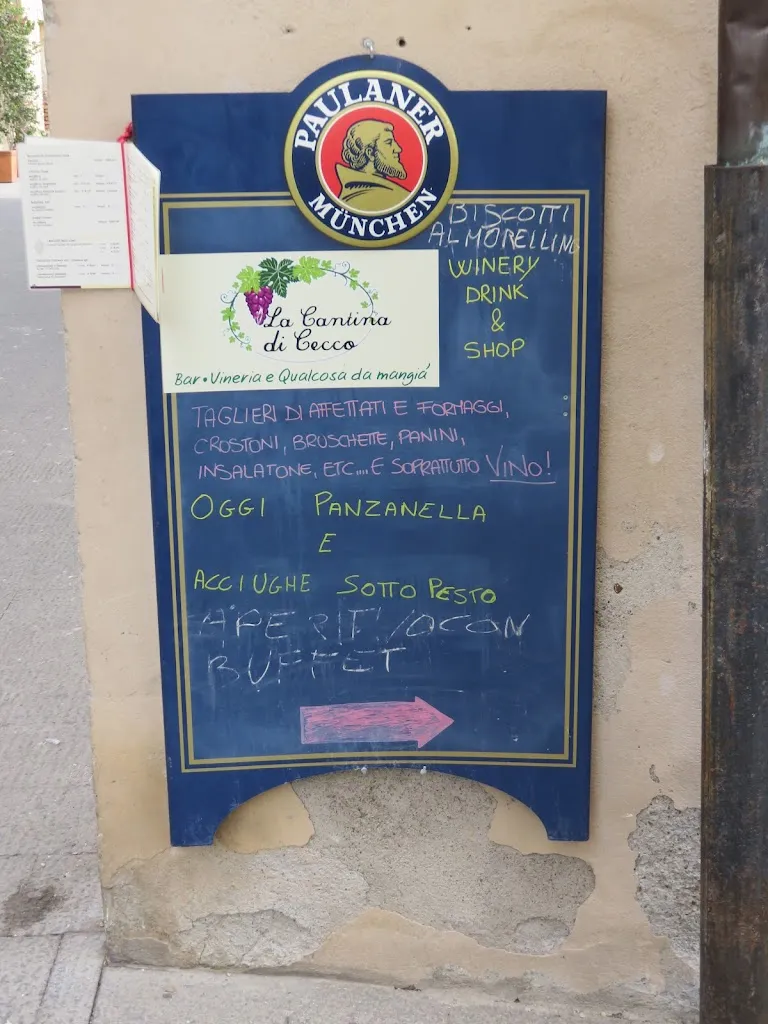 PAULANER
MÜNCHEN
BISCOTTI
AL MORELLINO
WINERY
DRINK
&
SHOP
La Cantina
di Cecco
Bar • Vineria e Qualcosa da mangia'
TAGLIERI DI AFFETTATI E FORMAGGI,
CROSTONI, BRUSCHETTE, PANINI,
INSALATONE, ETC.... E SOPRATTUTTO VINO!
OGGI PANZANELLA
E
ACCIUGHE SOTTO PESTO
APERITIVO CON
BUFFET